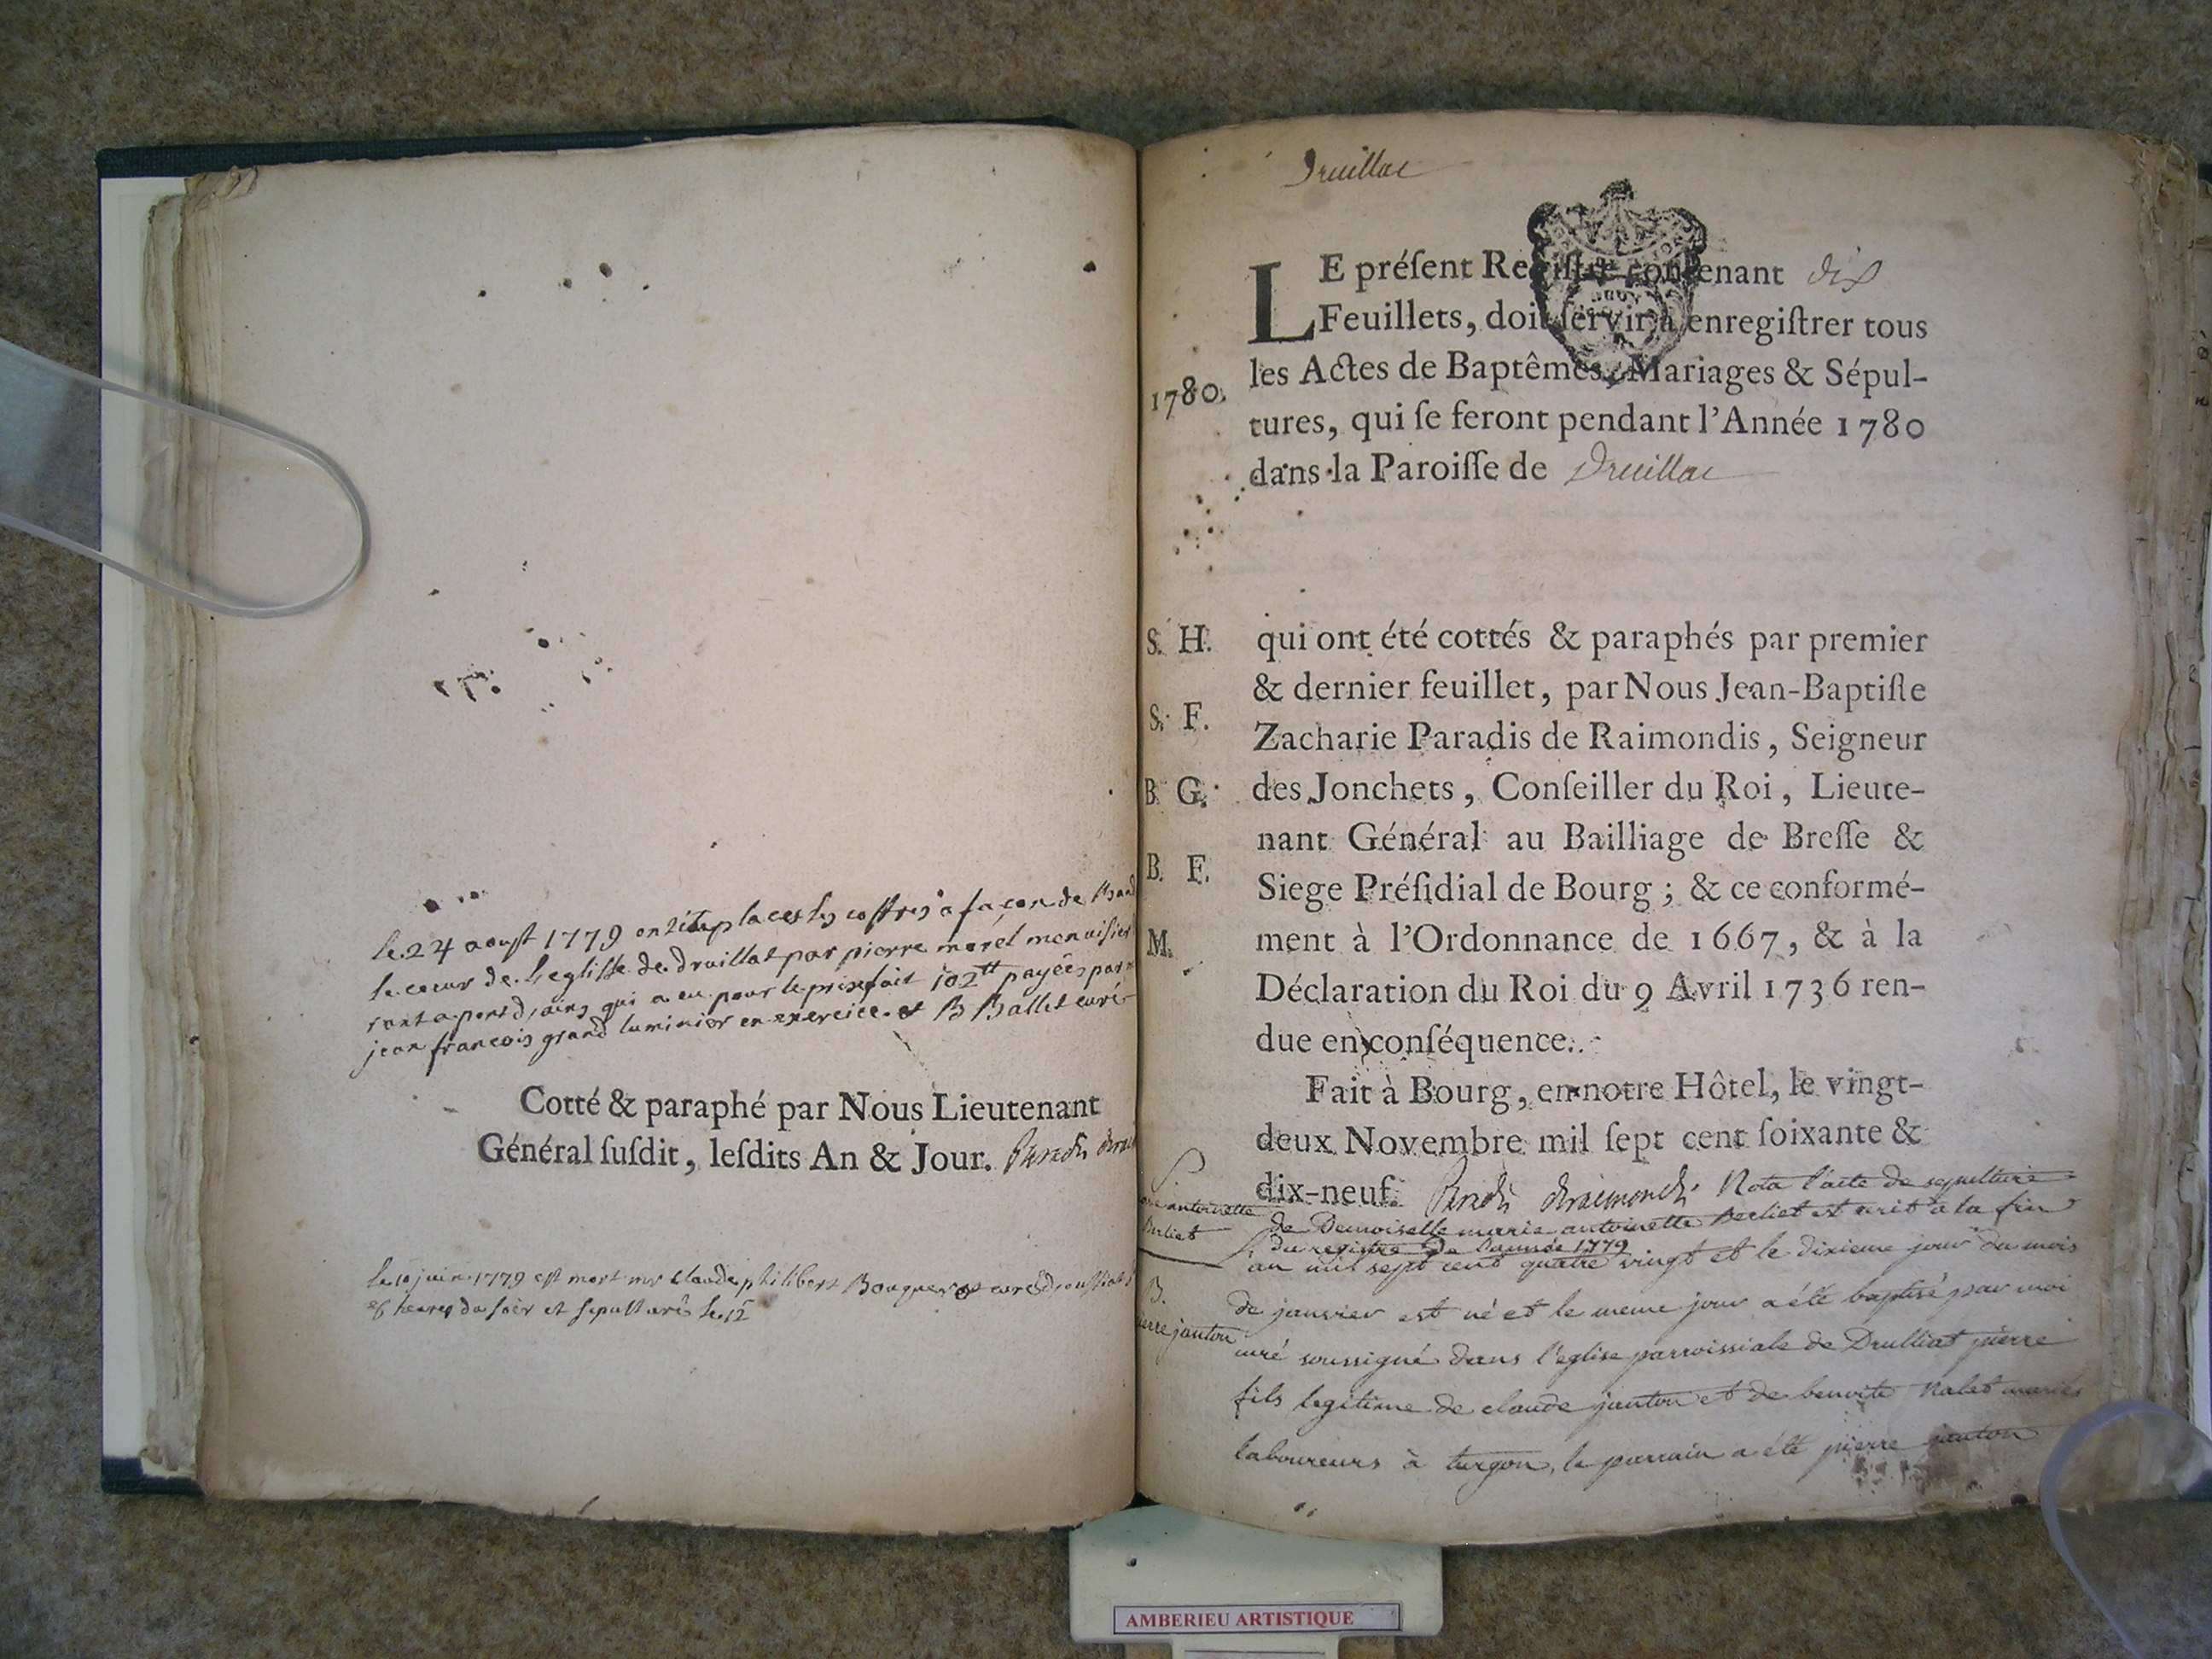 le 24 aoust 1779 on a placé les coffres a facon de
le coeur de leglisse de druillat par pierre morel menuisier
pont d'ains qui a eu pour le prixfait 102tt payées par
jean francois grand luminier en exercice. et B Ballet curé
Cotté & paraphé par Nous Lieutenant
Général suſdit, leſdits An & Jour. Paradis
le 10 juin 1779 est mort mr claude philibert Bouquerot curé
6 heures du soir et sepulturé le 12
Druillat
LE préſent Regiſtre contenant dix
Feuillets, doit ſervir à enregiſtrer tous
les Actes de Baptêmes, Mariages & Sépul-
1780.
tures, qui ſe feront pendant l'Année 1780
dans la Paroiſſe de Druillat
S. H.
qui ont été cottés & paraphés par premier
& dernier feuillet, par Nous Jean-Baptiſte
S. F.
Zacharie Paradis de Raimondis, Seigneur
B. G.
des Jonchets, Conſeiller du Roi, Lieute-
nant Général au Bailliage de Breſſe &
B. F.
Siege Préſidial de Bourg; & ce conformé-
M.
ment à l'Ordonnance de 1667, & à la
Déclaration du Roi du 9 Avril 1736 ren-
due en conſéquence.
Fait à Bourg, en notre Hôtel, le vingt-
deux Novembre mil ſept cent ſoixante &
dix-neuf. Paradis deraimondis Nota l'acte de sepulture
antoinette
Berliet
de Demoiselle marie antoinette Berliet est écrit a la fin
du registre de l'année 1779
an mil sept cent quatre vingt et le dixieme jour du mois
B.
pierre janton
de janvier est né et le meme jour a été baptisé par moi
curé soussigné dans l'eglise parroissiale de Drulliat pierre
fils legitime de claude janton et de benoite Nalet mariés
laboureurs à turgon, le parrain a été pierre janton
AMBERIEU ARTISTIQUE